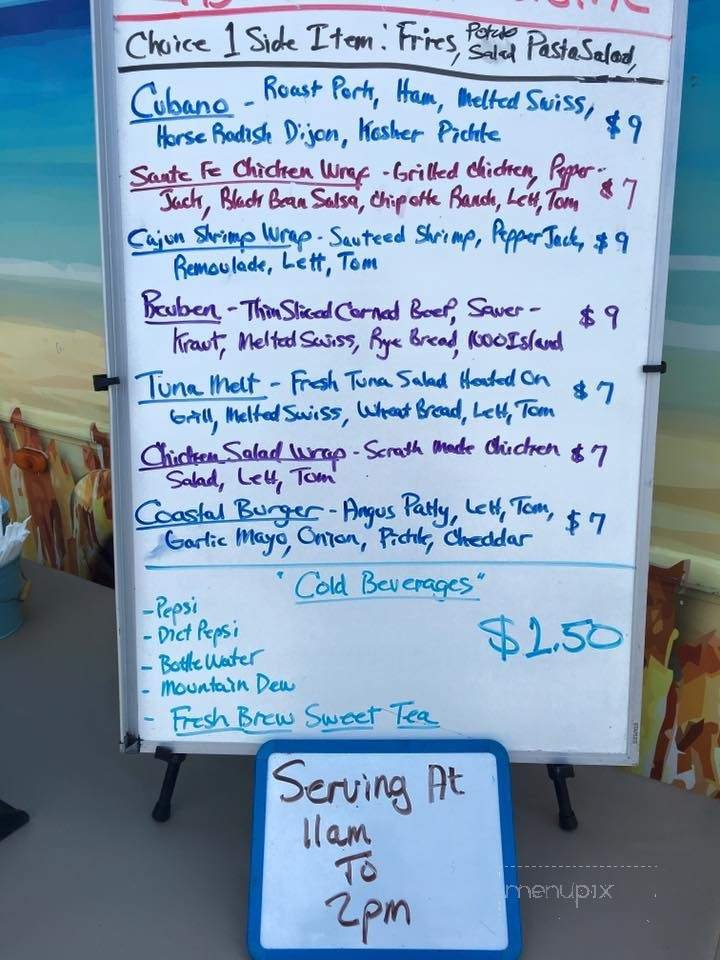 Choice 1 Side Item: Fries, Potato Salad Pasta Salad,
Cubano - Roast Pork, Ham, Melted Swiss,
Horse Radish Dijon, Kosher Pickle $9
Sante Fe Chicken Wrap - Grilled Chicken, Pepper-
Jack, Black Bean Salsa, Chipotle Ranch, Lett, Tom $7
Cajun Shrimp Wrap - Sauteed Shrimp, Pepper Jack, $9
Remoulade, Lett, Tom
Reuben - Thin Sliced Corned Beef, Sauer- $9
Kraut, Melted Swiss, Rye Bread, 1000 Island
Tuna Melt - Fresh Tuna Salad Heated On $7
Grill, Melted Swiss, Wheat Bread, Lett, Tom
Chicken Salad Wrap - Scrath Made Chicken $7
Salad, Lett, Tom
Coastal Burger - Angus Patty, Lett, Tom, $7
Garlic Mayo, Onion, Pickle, Cheddar
"Cold Beverages"
- Pepsi
- Diet Pepsi
- Bottle Water
- Mountain Dew
- Fresh Brew Sweet Tea
$1.50
Serving At
11am
To
2pm
menupix